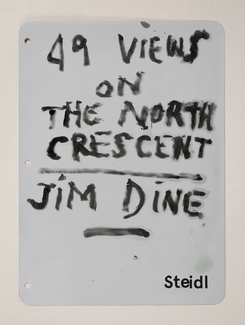 49 VIEWS
ON
THE NORTH
CRESCENT
JIM DINE
Steidl